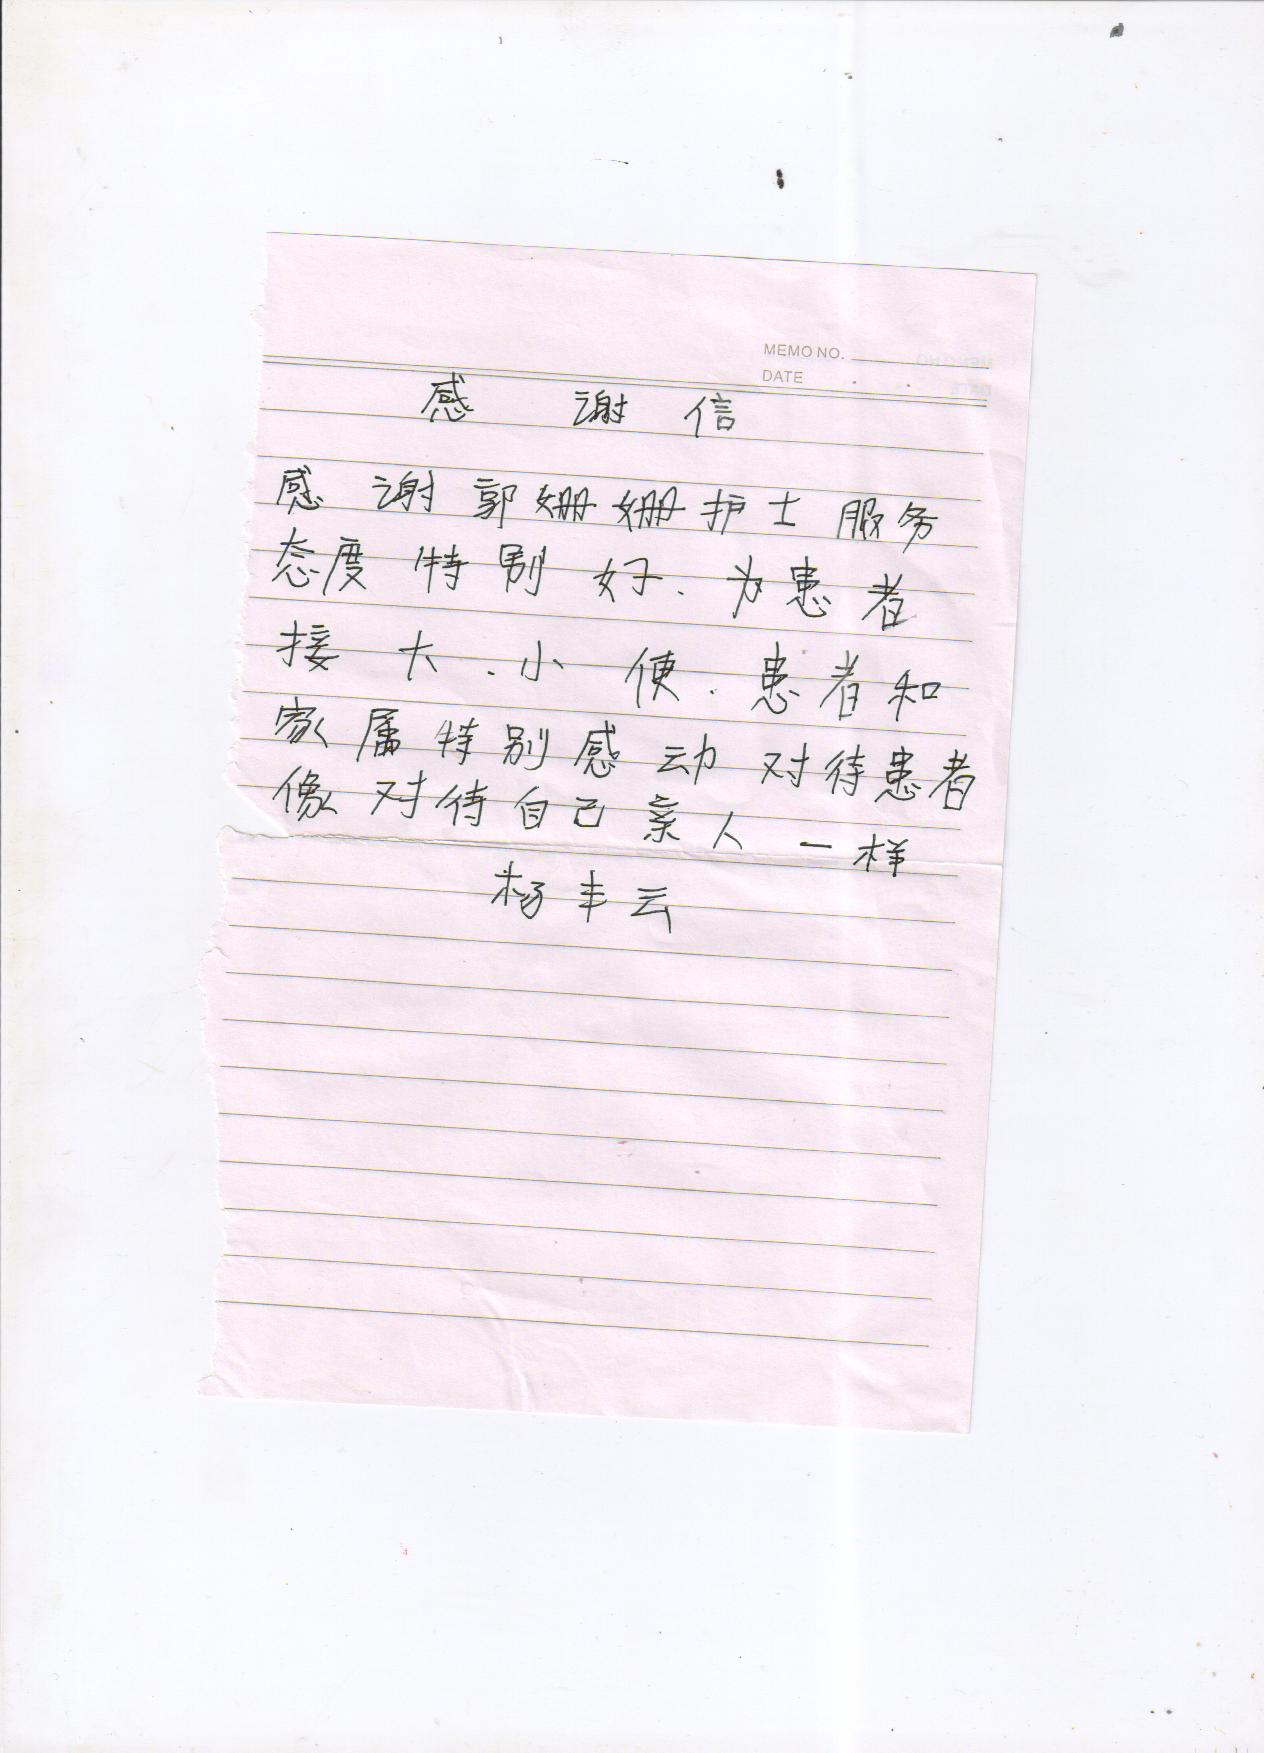 MEMO NO.
DATE . .
感谢信
感谢郭姗姗护士服务
态度特别好.为患者
接大.小便.患者和
家属特别感动对待患者
像对待自己亲人一样
杨丰云